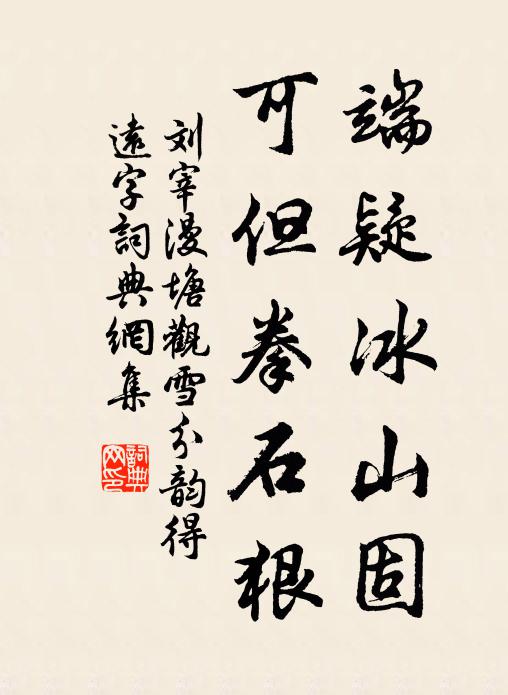 端疑冰山固
可但拳石狠
刘宰漫塘觀雪分韵得
遠字詞典網集
詞典网印